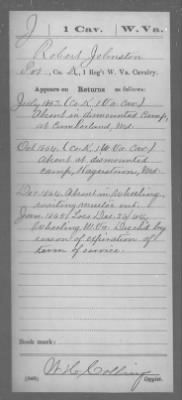 J | 1 Cav. | W. Va.
Robert Johnston
Co. K, 1 Reg't W. Va. Cavalry.
Appears on Returns as follows:
July 1864 (Co. K, 1 W. Va. Cav.)
Absent in dismounted camp,
at Cumberland, Md.
Oct 1864 (Co. K, 1 W. Va. Cav.)
absent at dismounted
camp, Hagerstown, Md.
Dec 1864 Absent in Wheeling,
waiting muster out
Jan 1865 Loss Dec.
Wheeling W. Va. Disch'd by
reason of expiration of
term of service.
Book mark:
Copyist.